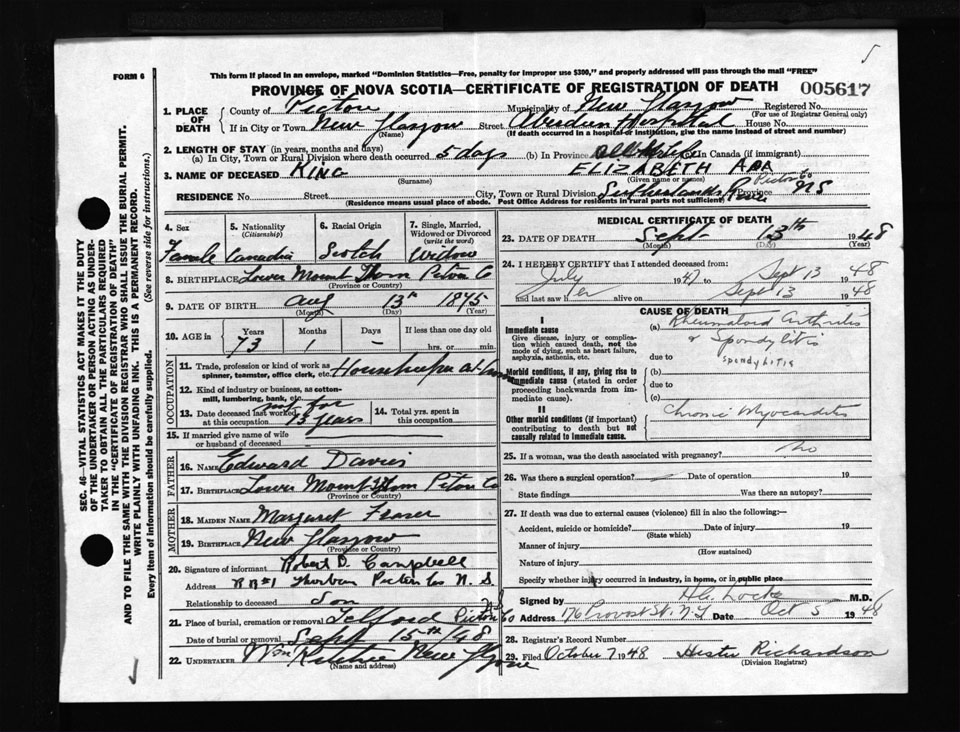 FORM 6
This form if placed in an envelope, marked "Dominion Statistics—Free, penalty for improper use $300," and properly addressed will pass through the mail "FREE"
PROVINCE OF NOVA SCOTIA—CERTIFICATE OF REGISTRATION OF DEATH 005617
1. PLACE OF DEATH
County of Pictou Municipality of New Glasgow Registered No.
(For use of Registrar General only)
If in City or Town New Glasgow Street Aberdeen Hospital House No.
(Name) (If death occurred in a hospital or institution, give the name instead of street and number)
2. LENGTH OF STAY (in years, months and days)
(a) In City, Town or Rural Division where death occurred 5 days (b) In Province all her life (c) In Canada (if immigrant)
3. NAME OF DECEASED KING ELIZABETH ADA
(Surname) (Given name or names)
RESIDENCE No. Street City, Town or Rural Division Sutherlands River Pictou Co Province NS
(Residence means usual place of abode. Post Office Address for residents in rural parts not sufficient)
4. Sex
Female
5. Nationality
(Citizenship)
Canadian
6. Racial Origin
Scotch
7. Single, Married, Widowed or Divorced
(write the word)
Widow
8. BIRTHPLACE Lower Mount Thom Pictou Co
(Province or Country)
9. DATE OF BIRTH Aug 13th 1875
(Month) (Day) (Year)
10. AGE in Years Months Days If less than one day old
73 1 – hrs. or min.
OCCUPATION
11. Trade, profession or kind of work as spinner, teamster, office clerk, etc. Housekeeper at home
12. Kind of industry or business, as cotton-mill, lumbering, bank, etc.
13. Date deceased last worked at this occupation not for 15 years
14. Total yrs. spent in this occupation
15. If married give name of wife or husband of deceased
FATHER
16. NAME Edward Davies
17. BIRTHPLACE Lower Mount Thom Pictou Co
(Province or Country)
MOTHER
18. MAIDEN NAME Margaret Fraser
19. BIRTHPLACE New Glasgow
(Province or Country)
20. Signature of informant Robert D. Campbell
Address RR#1 Thorburn Pictou Co N.S.
Relationship to deceased Son
21. Place of burial, cremation or removal Telford Pictou Co
Date of burial or removal Sept 15th/48
22. UNDERTAKER Wm Ritchie New Glasgow
(Name and address)
MEDICAL CERTIFICATE OF DEATH
23. DATE OF DEATH Sept 13th 1948
(Month) (Day) (Year)
24. I HEREBY CERTIFY that I attended deceased from:
July 1947 to Sept 13 1948
and last saw her alive on Sept 13 1948
CAUSE OF DEATH
I
Immediate cause
Give disease, injury or complication which caused death, not the mode of dying, such as heart failure, asphyxia, asthenia, etc.
(a) Rheumatoid Arthritis & Spondylitis
due to spondylitis
Morbid conditions, if any, giving rise to immediate cause (stated in order proceeding backwards from immediate cause).
(b)
due to
(c)
II
Other morbid conditions (if important) contributing to death but not causally related to immediate cause.
Chronic Myocarditis
25. If a woman, was the death associated with pregnancy? no
26. Was there a surgical operation? – Date of operation 19
State findings Was there an autopsy?
27. If death was due to external causes (violence) fill in also the following:—
Accident, suicide or homicide? Date of injury 19
(State which)
Manner of injury
(How sustained)
Nature of injury
Specify whether injury occurred in industry, in home, or in public place
Signed by H.G. Locke M.D.
Address 176 Provost St. N.G. Date Oct 5 1948
28. Registrar's Record Number
29. Filed October 7 1948 Hester Richardson
(Division Registrar)
SEC. 46—VITAL STATISTICS ACT MAKES IT THE DUTY
OF THE UNDERTAKER OR PERSON ACTING AS UNDER-
TAKER TO OBTAIN ALL THE PARTICULARS REQUIRED
IN THE "CERTIFICATE OF REGISTRATION OF DEATH"
AND TO FILE THE SAME WITH THE DIVISION REGISTRAR WHO SHALL ISSUE THE BURIAL PERMIT.
WRITE PLAINLY WITH UNFADING INK. THIS IS A PERMANENT RECORD.
Every item of information should be carefully supplied. (See reverse side for instructions.)